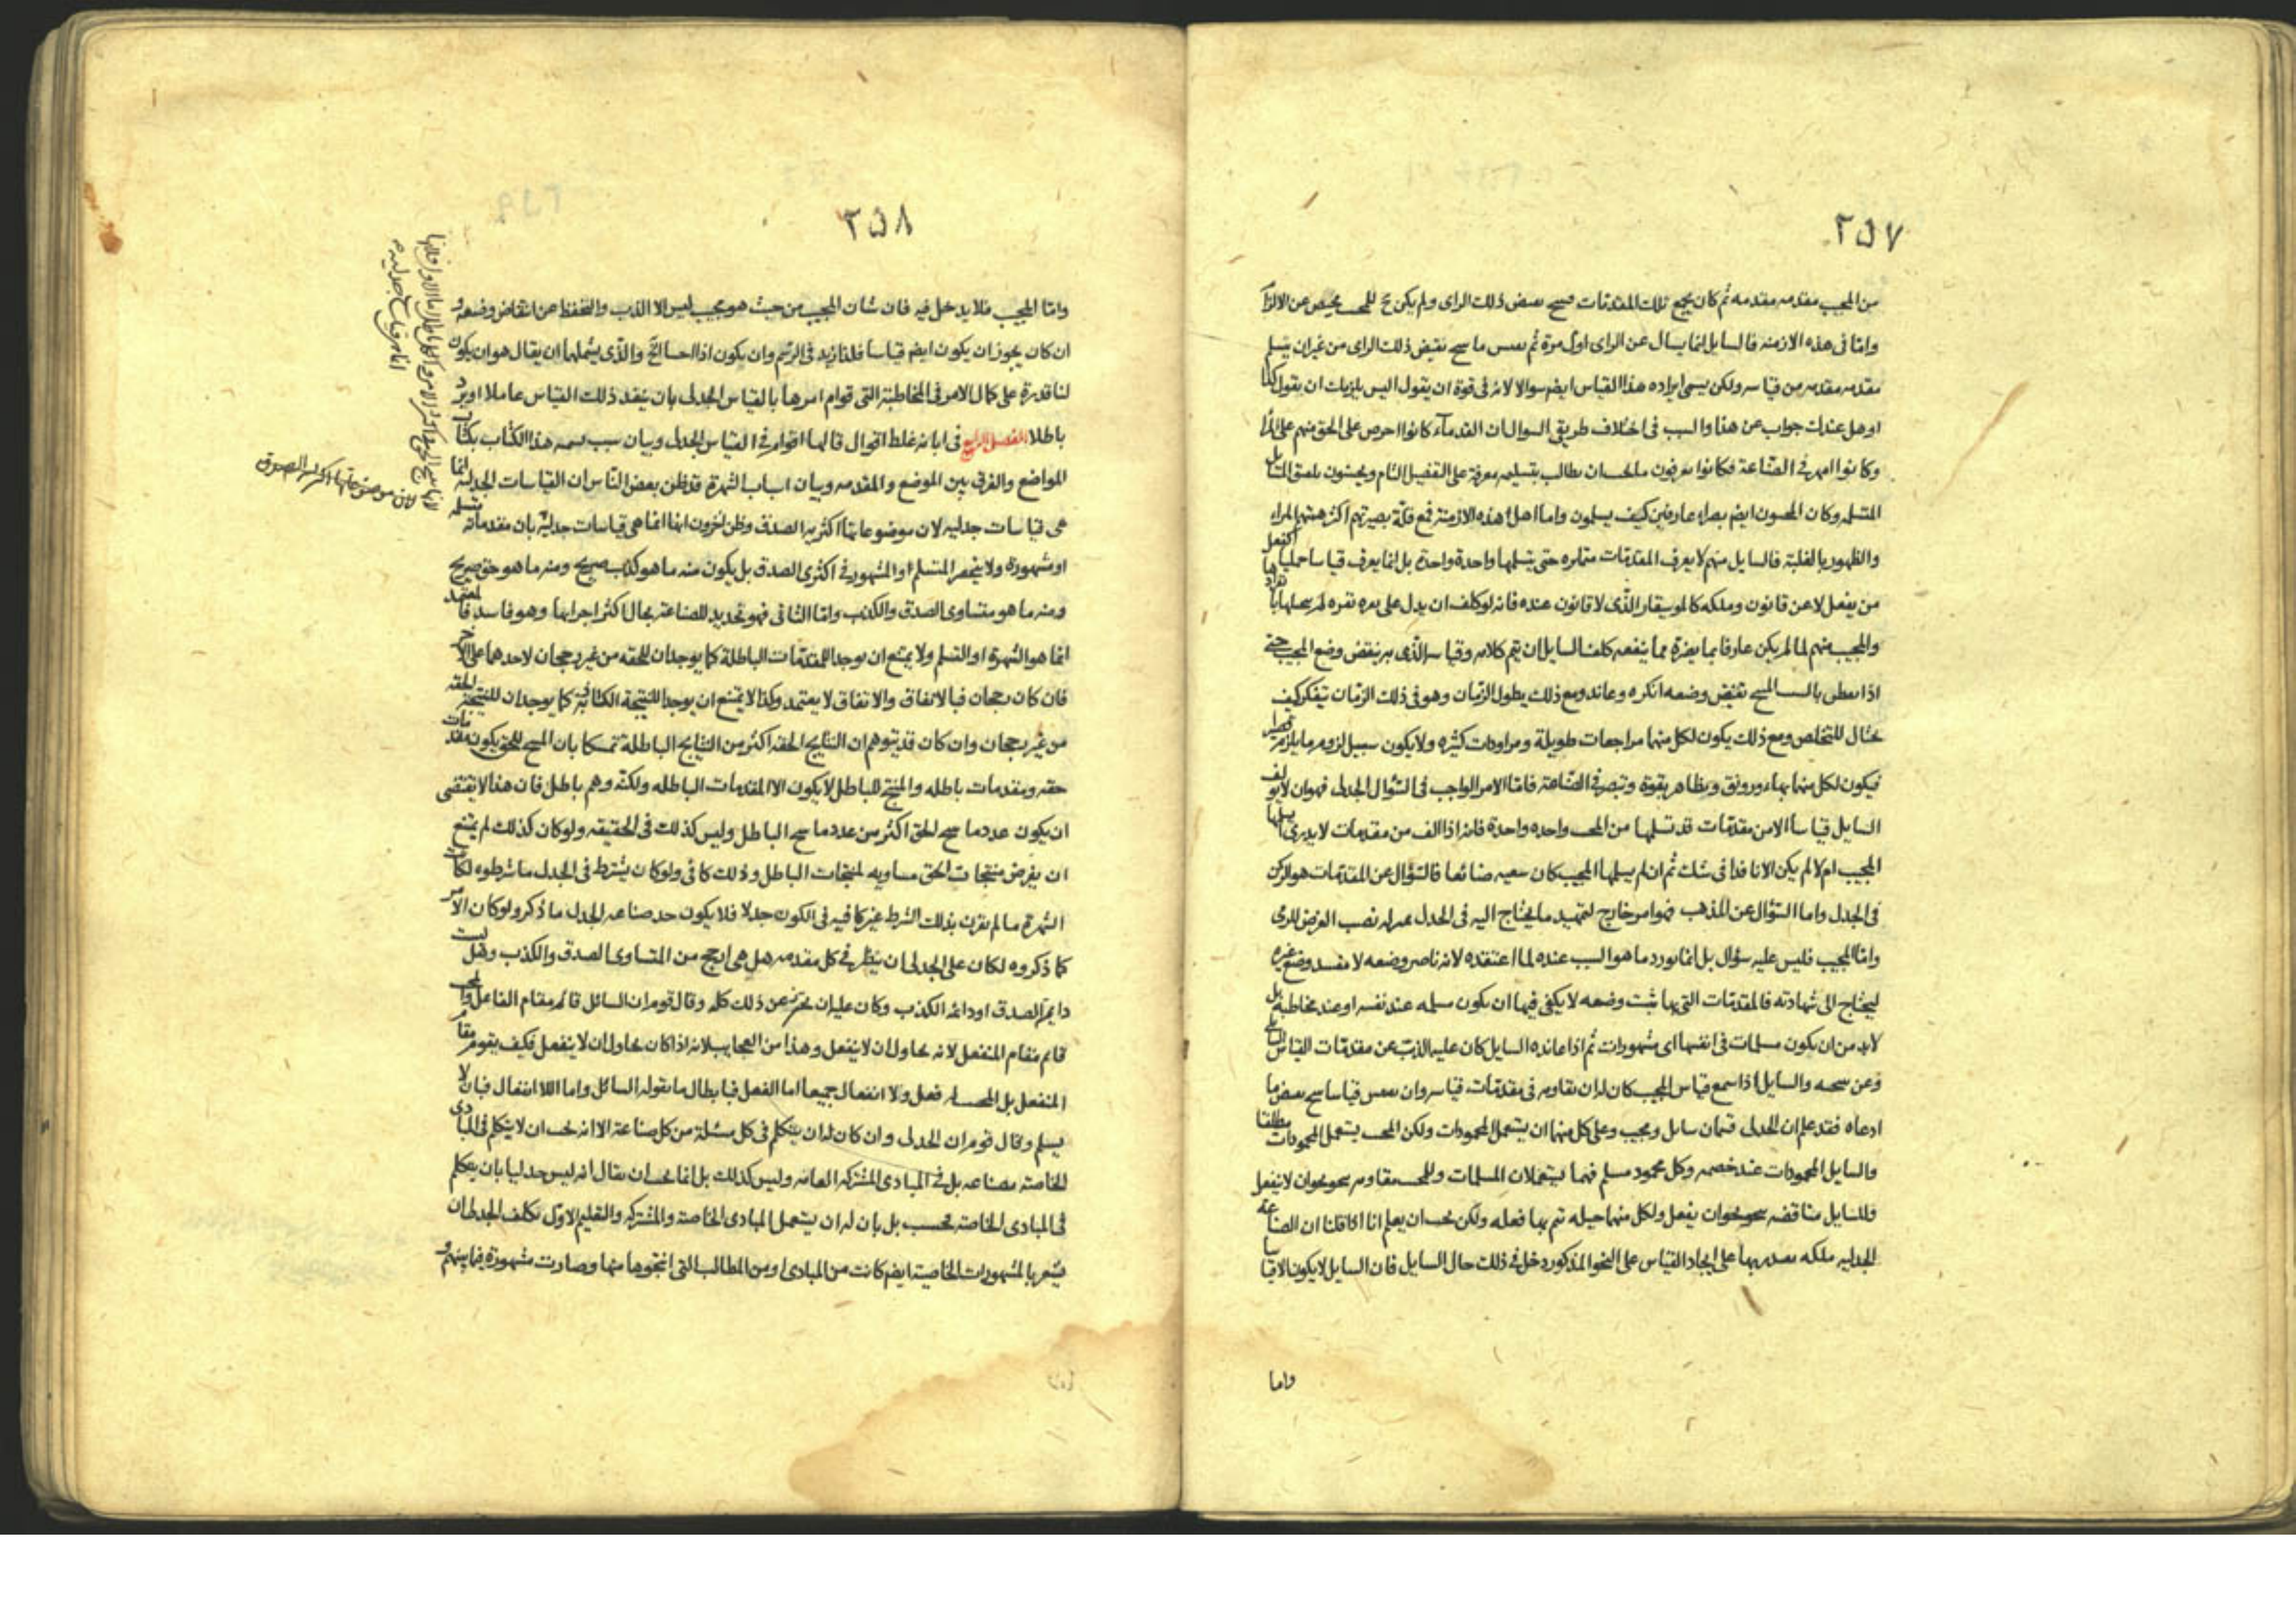 ٢٥٧
من المجيب مقدمه مقدمه ثم كان يجمع تلك المقدمات فينتج نقيض ذلك الراى ولم يكن ح للمجيب محيص عن الالزام
واما فى هذه الازمنه فالسايل انما يسال عن الراى اول مرة ثم يقيس ما ينتج نقيض ذلك الراى من غير ان يتسلم
مقدمه مقدمه من قياسه ولكن يسمى ايراده هذا القياس ايضا سوالا لانه فى قوة ان يقول اليس يلزمك ان يقول كذا
او هل عندك جواب عن هذا والسبب فى اختلاف طريقى السوال ان القدمآء كانوا احرص على الحق منهم على المرا
وكانوا امهر فى الصناعة فكانوا يعرفون ما يجب ان يطالب بتسليمه معرفة على التفصيل التام ويحسنون
المتسلمه وكان المجيبون ايضا بصراء عارفين كيف يسلمون واما اهل هذه الازمنة فمع قلة بصيرتهم اكثر همتهم المراء
والظهور بالغلبة فالسايل منهم لا يعرف المقدمات متمايزه حتى يتسلمها واحدة واحدة بل انما يعرف قياسا جمليا كفعل
من يفعل لا عن قانون وملكه كالموسيقار الذى لا قانون عنده فانه لو كلف ان يدل على نقره نقره لم
والمجيب منهم لما لم يكن عارفا بما يضره مما ينفعه كلف السايل ان يتم كلامه وقياسه الذى به ينقض وضع المجيب حتى
اذا نقيض وضعه انكره وعاند ومع ذلك يطول الزمان وهو فى ذلك الزمان يتفكر كيف
يحتال للتخلص ومع ذلك يكون لكل منهما مراجعات طويلة ومراودات كثيره ولا يكون سبيل لزوم ما يلزم
فيكون لكل منهما بهاء ورونق وتظاهر بقوة وتبصر فى الصناعة فاما الامر الواجب فى السؤال الجدلى فهو ان لا يولف
السايل قياسا الا من مقدمات قد تسلمها من المجيب واحده واحدة فانه اذا الف من مقدمات لا يدرى ايسلمها
المجيب ام لا لم يكن الا نافذا فى شك ثم ان لم يسلمها المجيب كان سعيه ضائعا فالسؤال عن المقدمات هو الركن
فى الجدل واما السؤال عن المذهب فهو امر خارج لتمهيد ما يحتاج اليه فى الجدل بمنزله نصب الغرض للرمى
واما المجيب فليس عليه سؤال بل انما يورد ما هو السبب عنده لما اعتقده لانه ناصر وضعه لا مفسد وضع غيره
ليحتاج الى شهادته فالمقدمات التى بها يثبت وضعه لا يكفى فيها ان يكون مسلمه عند نفسه او عند مخاطبه بل
لابد من ان يكون مسلمات فى انفسها اى مشهورات ثم اذا عانده السايل كان عليه الذب عن مقدمات القياس
وعن والسايل اذا سمع قياس المجيب كان له ان يقاومه فى مقدمات قياسه وان يقيس قياسا ينتج نقيض ما
ادعاه فقد علم ان الجدلى قسمان سايل ومجيب وعلى كل منهما ان يستعمل المحمودات ولكن المجيب يستعمل المحمودات مطلقا
والسايل المحمودات عند خصمه وكل محمود مسلم فهما يستعملان المسلمات وللمجيب مقاومه نحو ان لا ينفعل
وللسايل مناقضه نحو ان يفعل ولكل منهما حيله تتم بها فعله ولكن يجب ان يعلم انا اذا قلنا ان الصناعة
الجدليه ملكه يقتدر بها على ايجاد القياس على النحو المذكور دخل فى ذلك حال السايل فان السايل لا يكون الا قياسا
واما
٢٥٨
واما المجيب فلا يدخل فيه فان شان المجيب من حيث هو مجيب ليس الا الذب والتحفظ عن انتقاض وضعه و
ان كان يجوز ان يكون ايضا قياسا فلنا زيد فى الرسم وان يكون اذا الخ والذى يشملهما ان يقال هو ان يكون
لنا قدرة على كمال الامر فى المخاطبة التى قوام امرها بالقياس الجدلى بان ينفذ ذلك القياس عاملا او يرد
باطلا الفصل الرابع فى ابانه غلط اقوال قالها اقوام فى القياس الجدلى وبيان سبب سمه هذا الكتاب بكتاب
المواضع والفرق بين الموضع والمقدمه وبيان اسباب الشهرة قد ظن بعض الناس ان القياسات الجدليه انما
هى قياسات جدليه لان موضوعاتها اكثريه الصدق وظن اخرون انها انما هى قياسات جدلية بان مقدماته متسلمه
او مشهورة ولا ينحصر المتسلم او المشهور فى اكثرى الصدق بل يكون منه ما هو كذب صريح ومنه ما هو حق صريح
ومنه ما هو متساوى الصدق والكذب واما الثانى فهو تحديد للصناعة بحال اكثر اجزايها وهو فاسد فالمعتمد
انما هو الشهرة او التسلم ولا يمتنع ان يوجد للمقدمات الباطلة كما يوجدان للحقه من غير رجحان لاحدهما على الاخر
فان كان رجحان فبالاتفاق والاتفاق لا يعتمد وكذا لا يمتنع ان يوجدا للنتيجة الكاذبه كما يوجدان للنتيجه الحقه
من غير رجحان وان كان قد يتوهم ان النتايج الحقه اكثر من النتايج الباطلة تمسكا بان المنتج للحق يكون مقدمات
حقه ومقدمات باطله والمنتج للباطل لا يكون الا المقدمات الباطله ولكنه وهم باطل فان هذا لا يقتضى
ان يكون عدد ما ينتج الحق اكثر من عدد ما ينتج الباطل وليس كذلك فى الحقيقه ولو كان كذلك لم يمتنع
ان يفرض منتجات الحق مساويه لمنتجات الباطل وذلك كاف ولو كان يشترط فى الجدل ما شرطوه لكان
الشهرة ما لم يقرن بذلك الشرط غير كافيه فى الكون جدلا فلا يكون حد صناعه الجدل ما ذكر ولو كان الامر
كما ذكروه لكان على الجدلى ان ينظر فى كل مقدمه هل هى ارجح من المتساوى الصدق والكذب وهل ليست
دايمة الصدق او دائمه الكذب وكان عليه ان يحترز عن ذلك كله وقال قوم ان السائل قائم مقام الفاعل والمجيب
قايم مقام المنفعل لانه يحاول ان لا ينفعل وهذا من العجايب لانه اذا كان يحاول ان لا ينفعل فكيف يقوم مقام
المنفعل بل المجيب له فعل ولا انفعال جميعا اما الفعل فبابطال ما يقوله السائل واما اللا انفعال فبان لا
يسلم وقال قوم ان الجدلى وان كان له ان يتكلم فى كل مسئلة من كل صناعة الا انه يجب ان لا يتكلم فى المبادى
الخاصة بصناعه بل فى المبادى المشتركه العامه وليس كذلك بل انما يجب ان يقال انه ليس جدليا بان يتكلم
فى المبادى الخاصة فحسب بل بان له ان يستعمل المبادى الخاصة والمشتركه والتعليم الاول تكلف الجدلى ان
يشعر بالمشهورات الخاصية ايضا كانت من المبادى او من المطالب التى انتجوها منها وصارت مشهورة فيما بينهم و